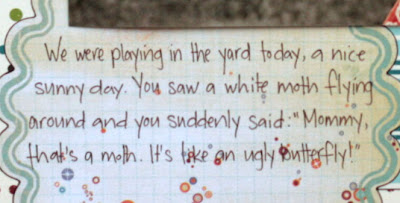 We were playing in the yard today, a nice
sunny day. You saw a white moth flying
around and you suddenly said: "Mommy,
that's a moth. It's like an ugly butterfly!"